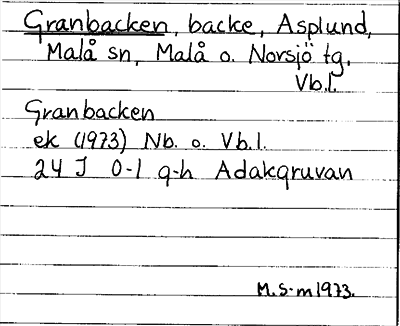 Granbacken, backe, Asplund,
Malå sn, Malå o. Norsjö tg,
Vb.l.
Granbacken
ek (1973) Nb. o. Vb.l.
24 J 0-1 g-h Adakgruvan
M.S-m 1973.